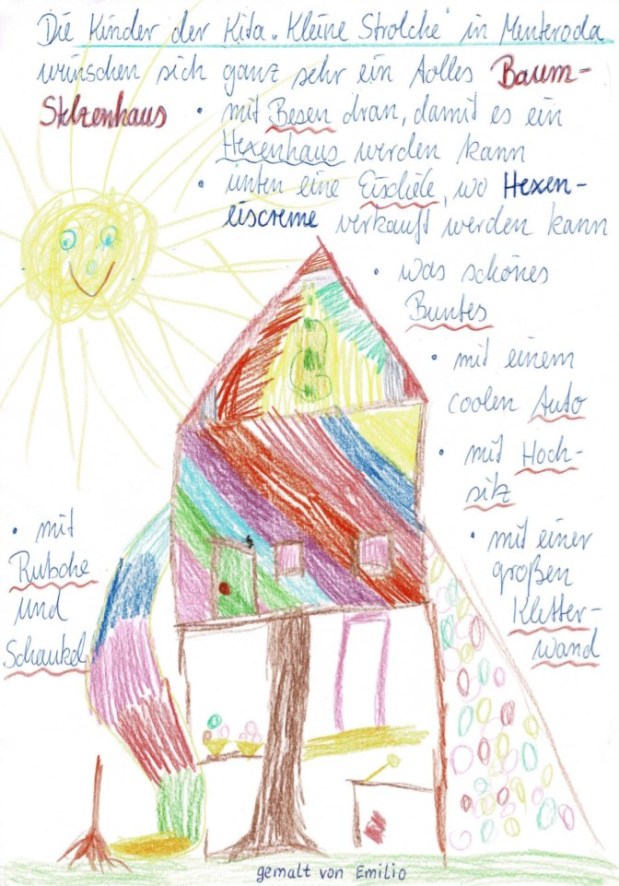 Die Kinder der Kita "Kleine Strolche" in Menteroda
wünschen sich ganz sehr ein tolles Baum-
Stelzenhaus
• mit Besen dran, damit es ein
Hexenhaus werden kann
• unten eine Eisdiele, wo Hexen-
eiscreme verkauft werden kann
• was schönes
Buntes
• mit einem
coolen Auto
• mit Hoch-
sitz
• mit einer
großen
Kletter-
wand
• mit
Rutsche
und
Schaukel
gemalt von Emilio